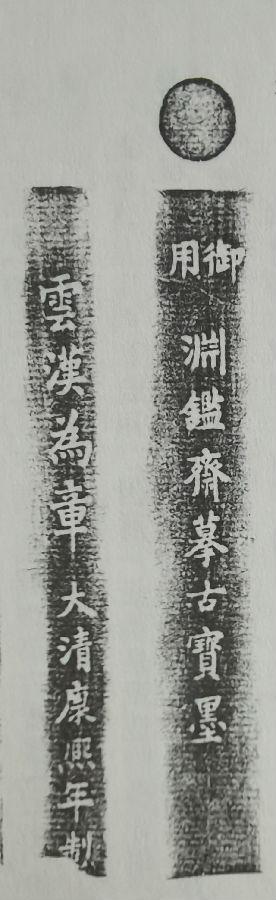 御用
淵鑑齋摹古寶墨
雲漢為章大清康熙年制